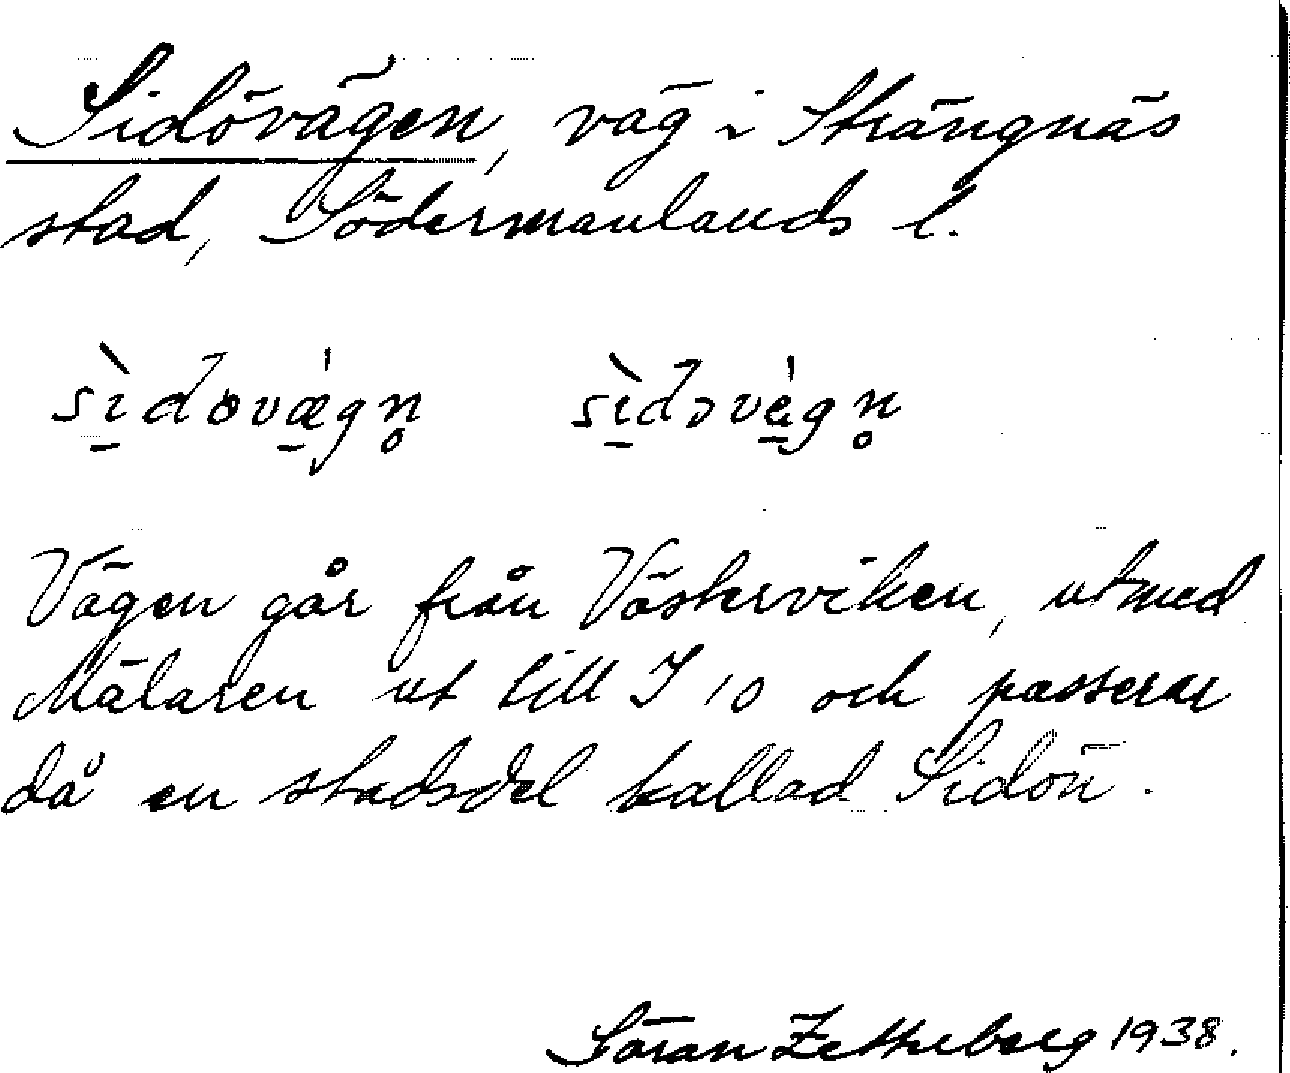 Sidövägen, väg i Strängnäs
stad, Södermanlands l.
sìdovǽgn̥ sìdɔvégn̥
Vägen går från Västerviken, utmed
Mälaren ut till I 10 och passerar
då en stadsdel kallad Sidön.
Göran Zetheborg 1938.